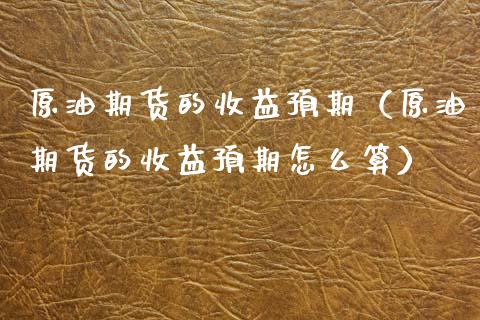 原油期货的收益预期（原油
期货的收益预期怎么算）